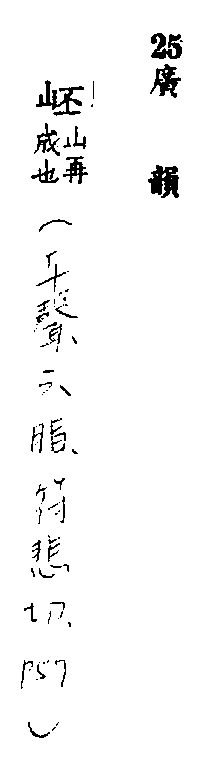 25廣韻
岯山再成也(平聲、六脂、符悲切、P57)